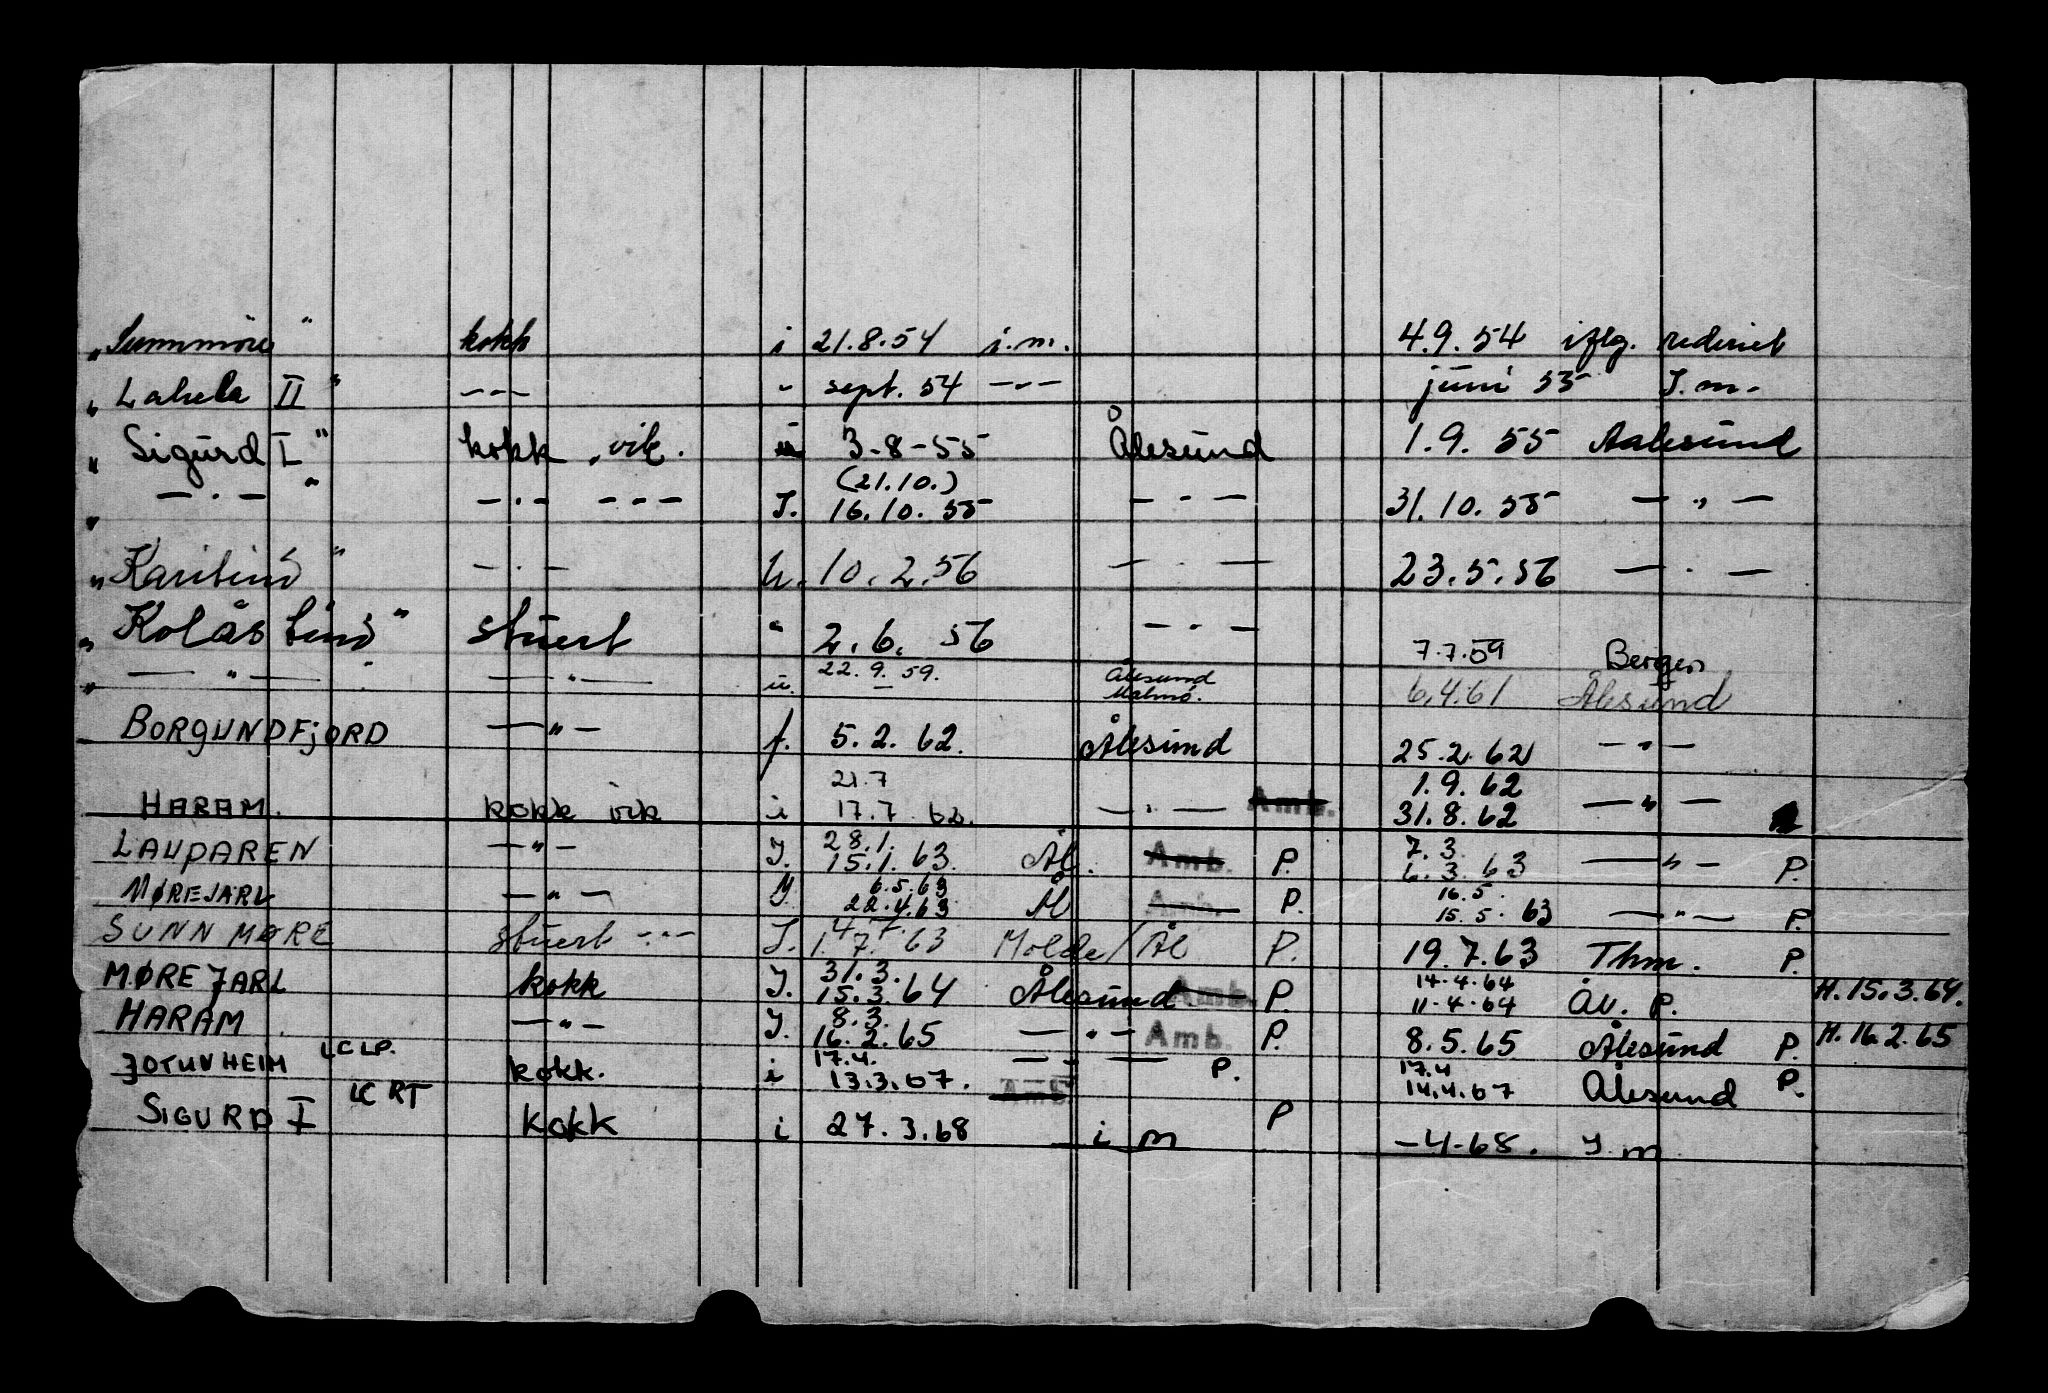 „Sunnmöre“ kokk i 21.8.54 i.m. 4.9.54 iflg. rederiet
„Lahela II“ --- " sept. 54 -"- juni 55 I.m.
„Sigurd I“ kokk vik. u 3-8-55 Ålesund 1.9.55 Aalesund
(21.10.)
„ -.- “ -.- --- I. 16.10.55 -"- 31.10.55 -"-
„Karitind“ -.- U. 10.2.56 -.- 23.5.56 -.-
„Kolåstind“ stuert " 2.6.56 -"- 7.7.59 Bergen
„ -"- -"- u. 22.9.59. Ålesund Malmö. 6.4.61 Ålesund
BORGUNDFJORD -"- f. 5.2.62. Ålesund 25.2.62 -"-
21.7 1.9.62
HARAM. kokk vik i 17.7.62. -.- Amb. 31.8.62 -"-
28.1. 7.3.
LAUPAREN -"- I. 15.1.63. Ål. Amb. P. 6.3.63 -"- P.
6.5.63 16.5.
MØREJARL -"- Y. 22.4.63 Ål Amb. P. 15.5.63 -"- P.
4.7.
SUNNMØRE stuert -.- I. 1.7.63 Molde/Ål P. 19.7.63 Thm. P.
31.3. 14.4.64
MØREJARL kokk I. 15.3.64 Ålesund Amb. P. 11.4.64 Åv. P. H.15.3.64.
8.3.
HARAM -"- I. 16.2.65 -"- Amb. P. 8.5.65 Ålesund P. H.16.2.65
17.4. 17.4
JOTUNHEIM LCLP. kokk. i 13.3.67. -"- P. 14.4.67 Ålesund P.
Amb.
SIGURD I LC RT kokk i 27.3.68 i m P -4-68. I.m.